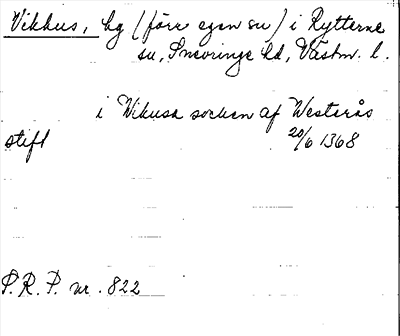 Vikhus, hg (förr egen sn) i Rytterne
sn, Snevringe hd, Västm. l.
i Wikusa socken af Westerås
stift 20/6 1368
P.R.P. nr. 822